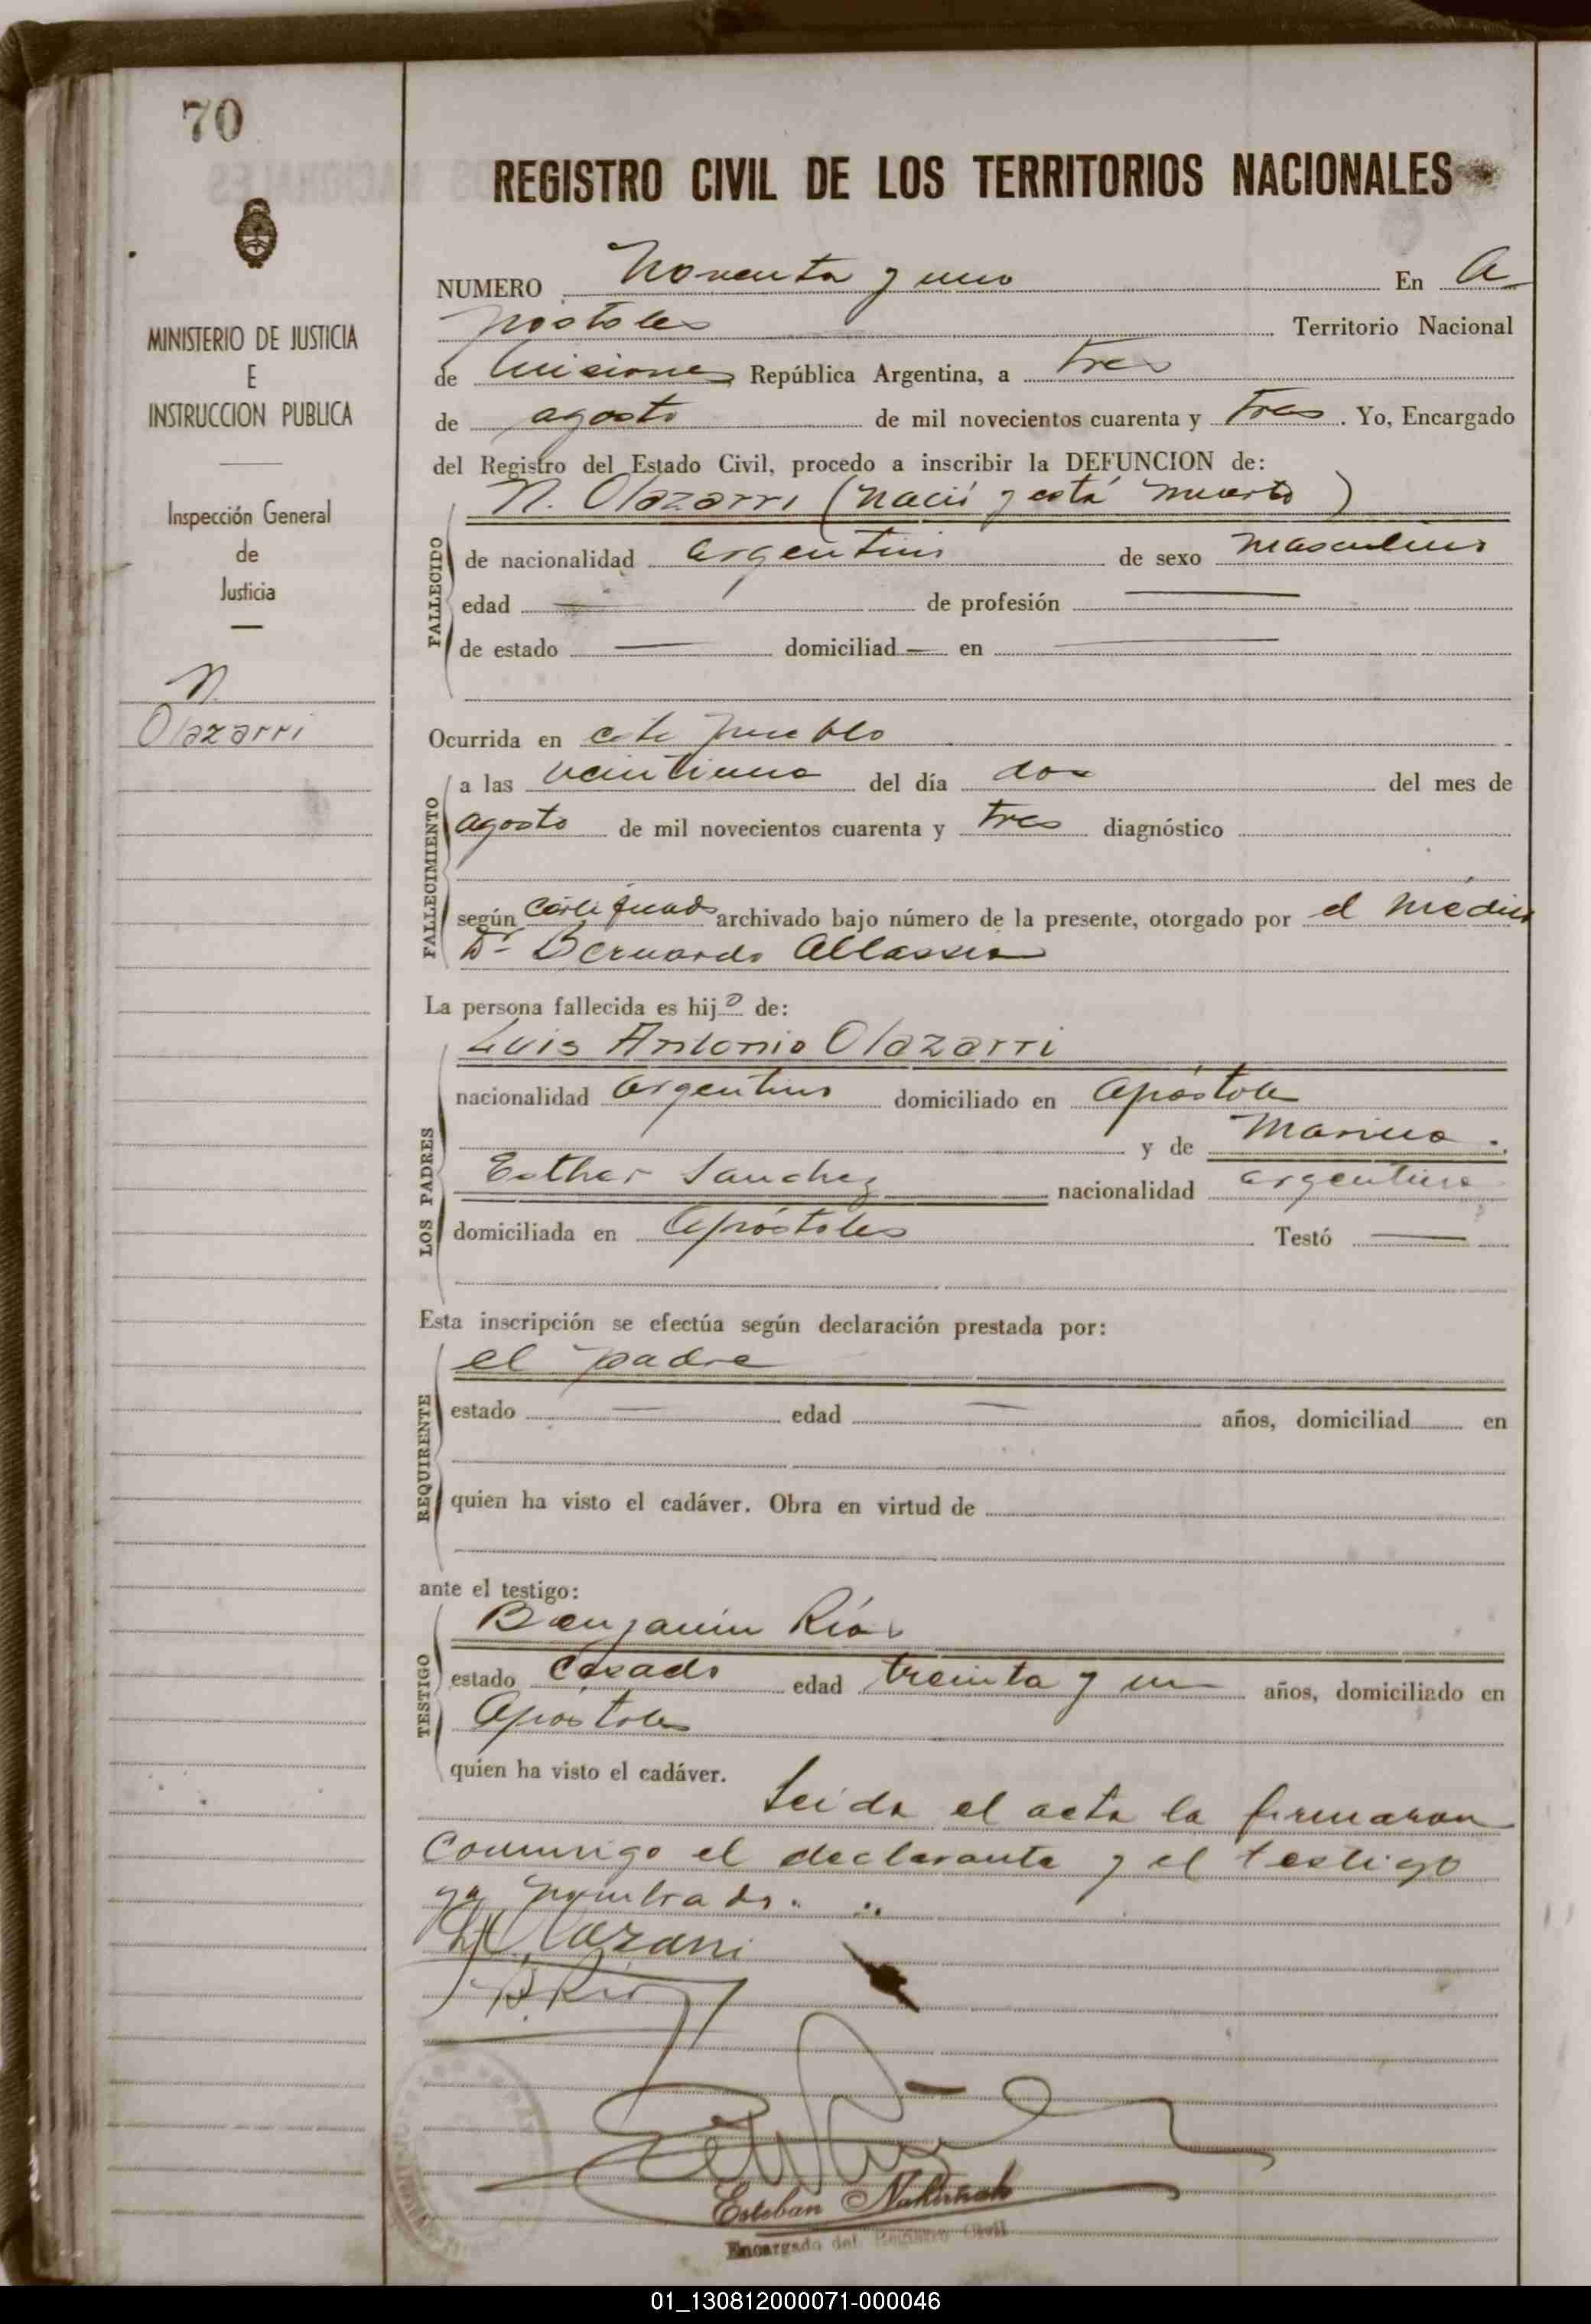 70
MINISTERIO DE JUSTICIA
E
INSTRUCCION PUBLICA
Inspección General
de
Justicia
N.
Olazarri
REGISTRO CIVIL DE LOS TERRITORIOS NACIONALES
NUMERO Noventa y uno En A
póstoles Territorio Nacional
de Misiones República Argentina, a tres
de agosto de mil novecientos cuarenta y tres. Yo, Encargado
del Registro del Estado Civil, procedo a inscribir la DEFUNCION de:
N. Olazarri (nació y está muerto)
FALLECIDO
de nacionalidad argentino de sexo masculino
edad — de profesión —
de estado — domiciliad — en —
Ocurrida en este pueblo
FALLECIMIENTO
a las veintiuna del día dos del mes de
agosto de mil novecientos cuarenta y tres diagnóstico
según certificado archivado bajo número de la presente, otorgado por el médico
Dr Bernardo Allassia
La persona fallecida es hijo de:
LOS PADRES
Luis Antonio Olazarri
nacionalidad argentino domiciliado en Apóstoles
y de Marina
Esther Sanchez nacionalidad argentina
domiciliada en Apóstoles Testó —
Esta inscripción se efectúa según declaración prestada por:
REQUIRENTE
el padre
estado — edad — años, domiciliad en
quien ha visto el cadáver. Obra en virtud de
ante el testigo:
TESTIGO
Benjamin Ríos
estado casado edad treinta y un años, domiciliado en
Apóstoles
quien ha visto el cadáver.
Leida el acta la firmaron
conmigo el declarante y el testigo
ya nombrado.
Olazarri
B. Rios
Esteban
Encargado del Registro Civil
01_130812000071-000046